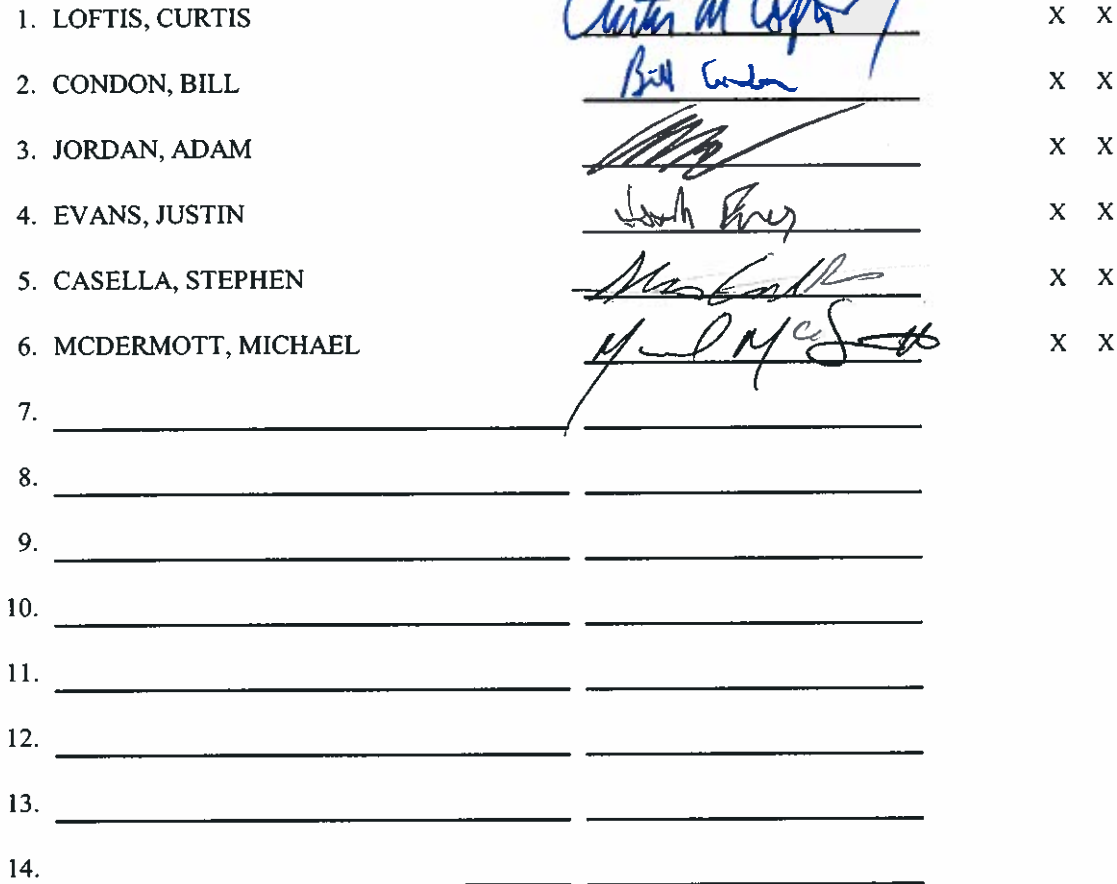 1. LOFTIS, CURTIS Curtis M Loftis X X
2. CONDON, BILL Bill Condon X X
3. JORDAN, ADAM X X
4. EVANS, JUSTIN X X
5. CASELLA, STEPHEN X X
6. MCDERMOTT, MICHAEL X X
7.
8.
9.
10.
11.
12.
13.
14.